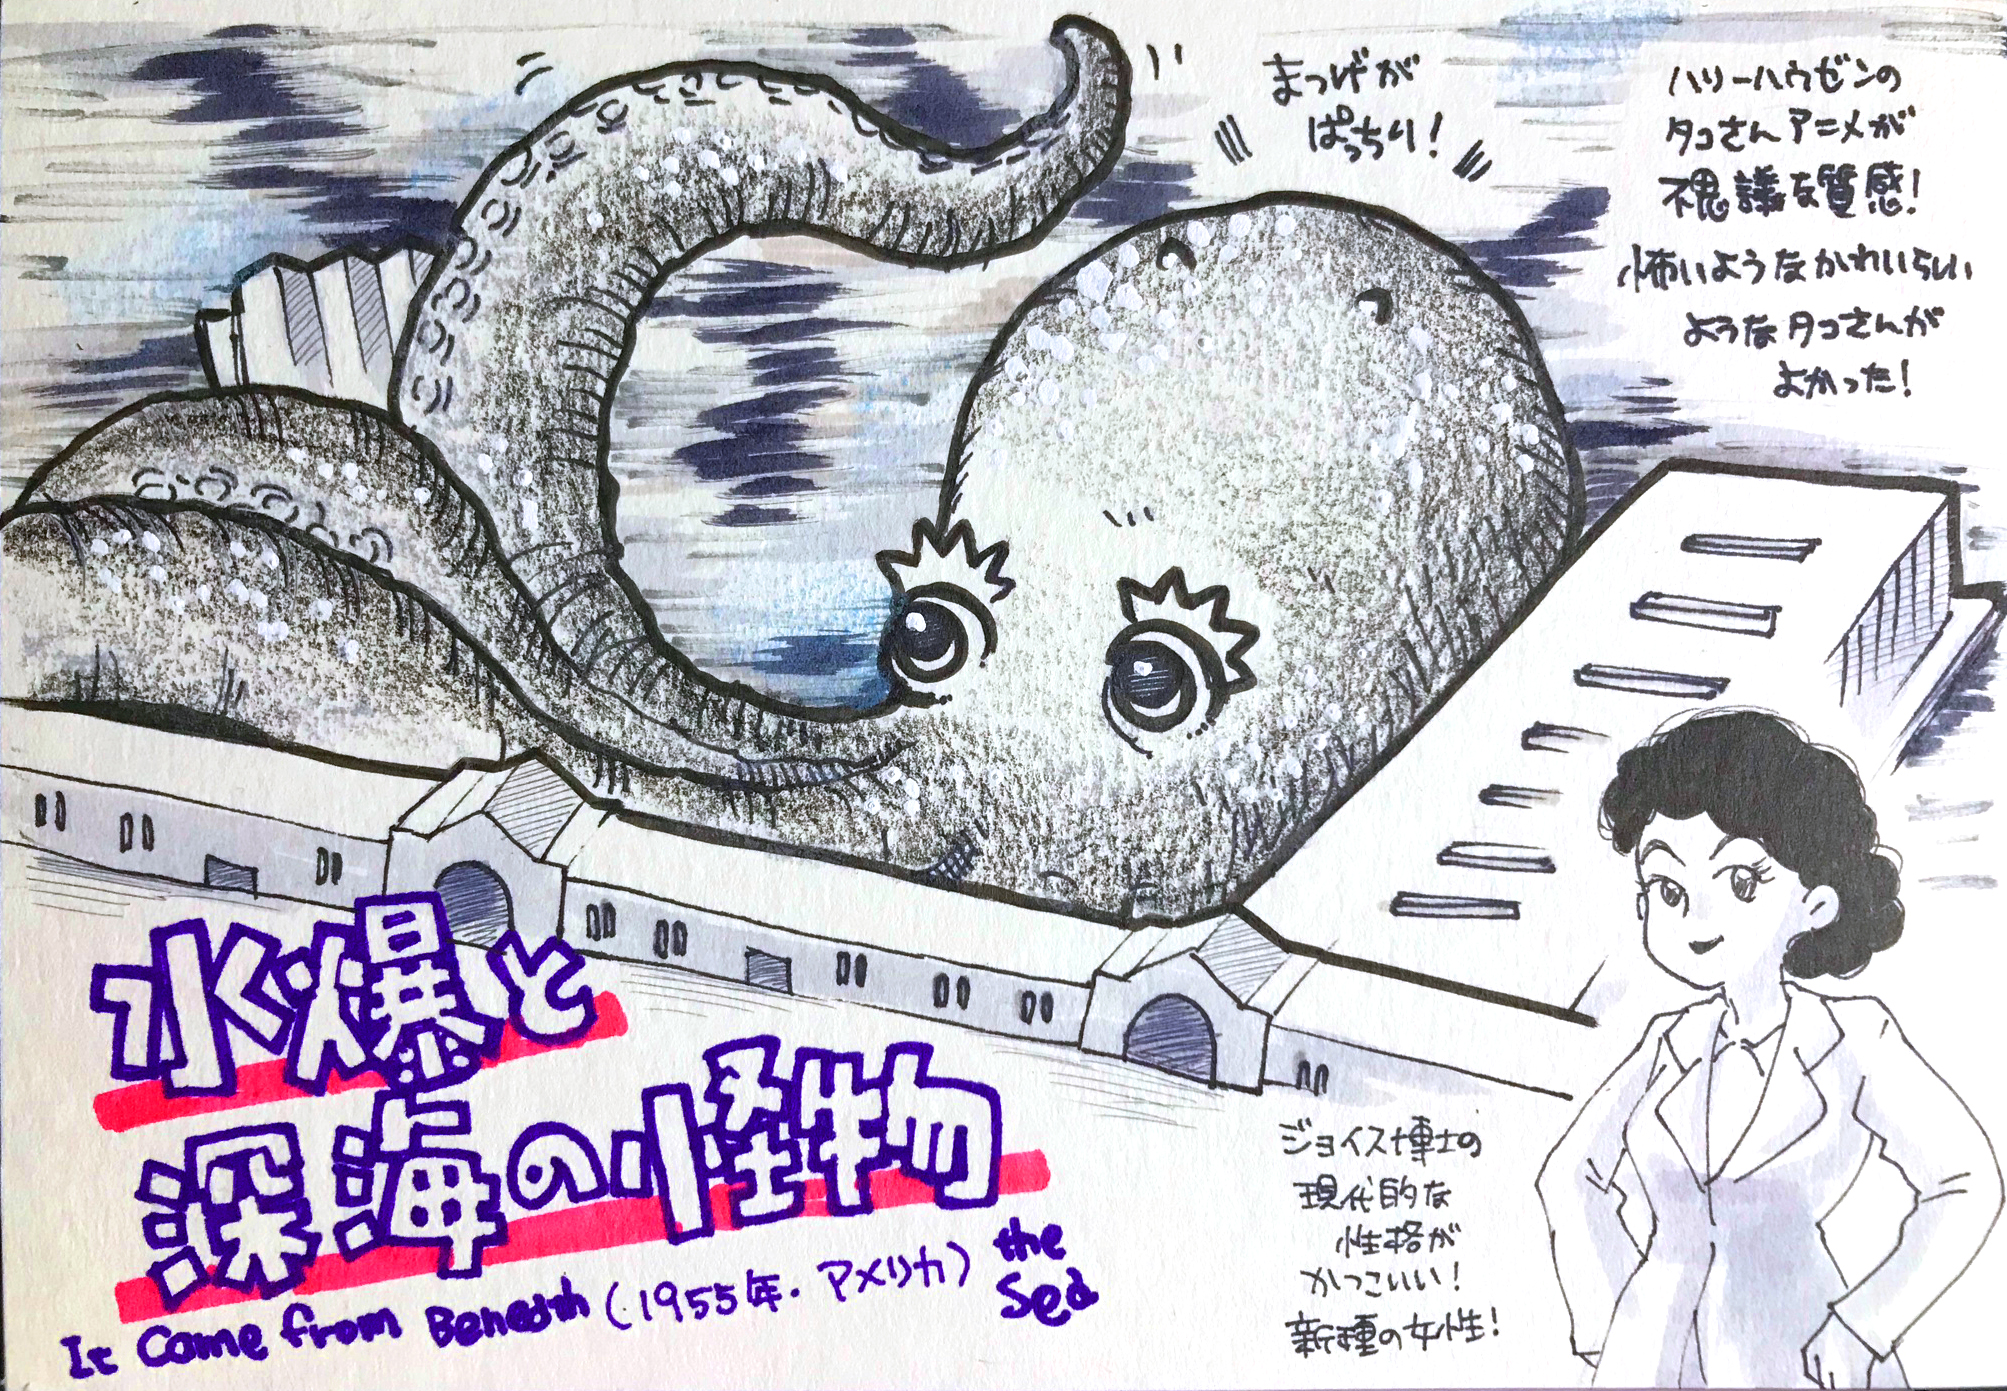 まつげが
ぱっちり!
ハリーハウゼンの
タコさんアニメが
不思議な質感!
怖いようなかわいらしい
ようなタコさんが
よかった!
水爆と
深海の怪物
It Came from Beneath (1955年.アメリカ) the
Sea
ジョイス博士の
現代的な
性格が
かっこいい!
新種の女性!